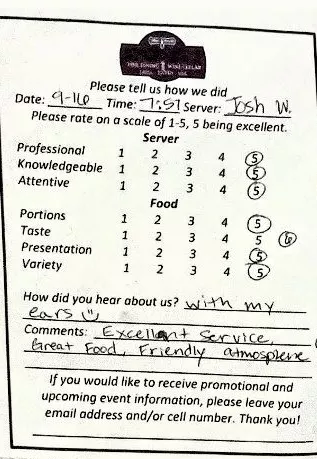 Please tell us how we did
Date: 9-16 Time: 7:57 Server: Josh W.
Please rate on a scale of 1-5, 5 being excellent.
Server
Professional 1 2 3 4 5
Knowledgeable 1 2 3 4 5
Attentive 1 2 3 4 5
Food
Portions 1 2 3 4 5
Taste 1 2 3 4 5 6
Presentation 1 2 3 4 5
Variety 1 2 3 4 5
How did you hear about us? with my
ears
Comments: Excellent Service,
Great Food, Friendly atmosphere
If you would like to receive promotional and
upcoming event information, please leave your
email address and/or cell number. Thank you!